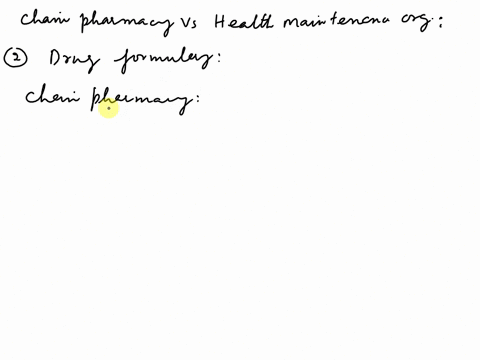 Chain pharmacy vs Health maintenana org:
② Drug formulary:
Chain pharmacy: